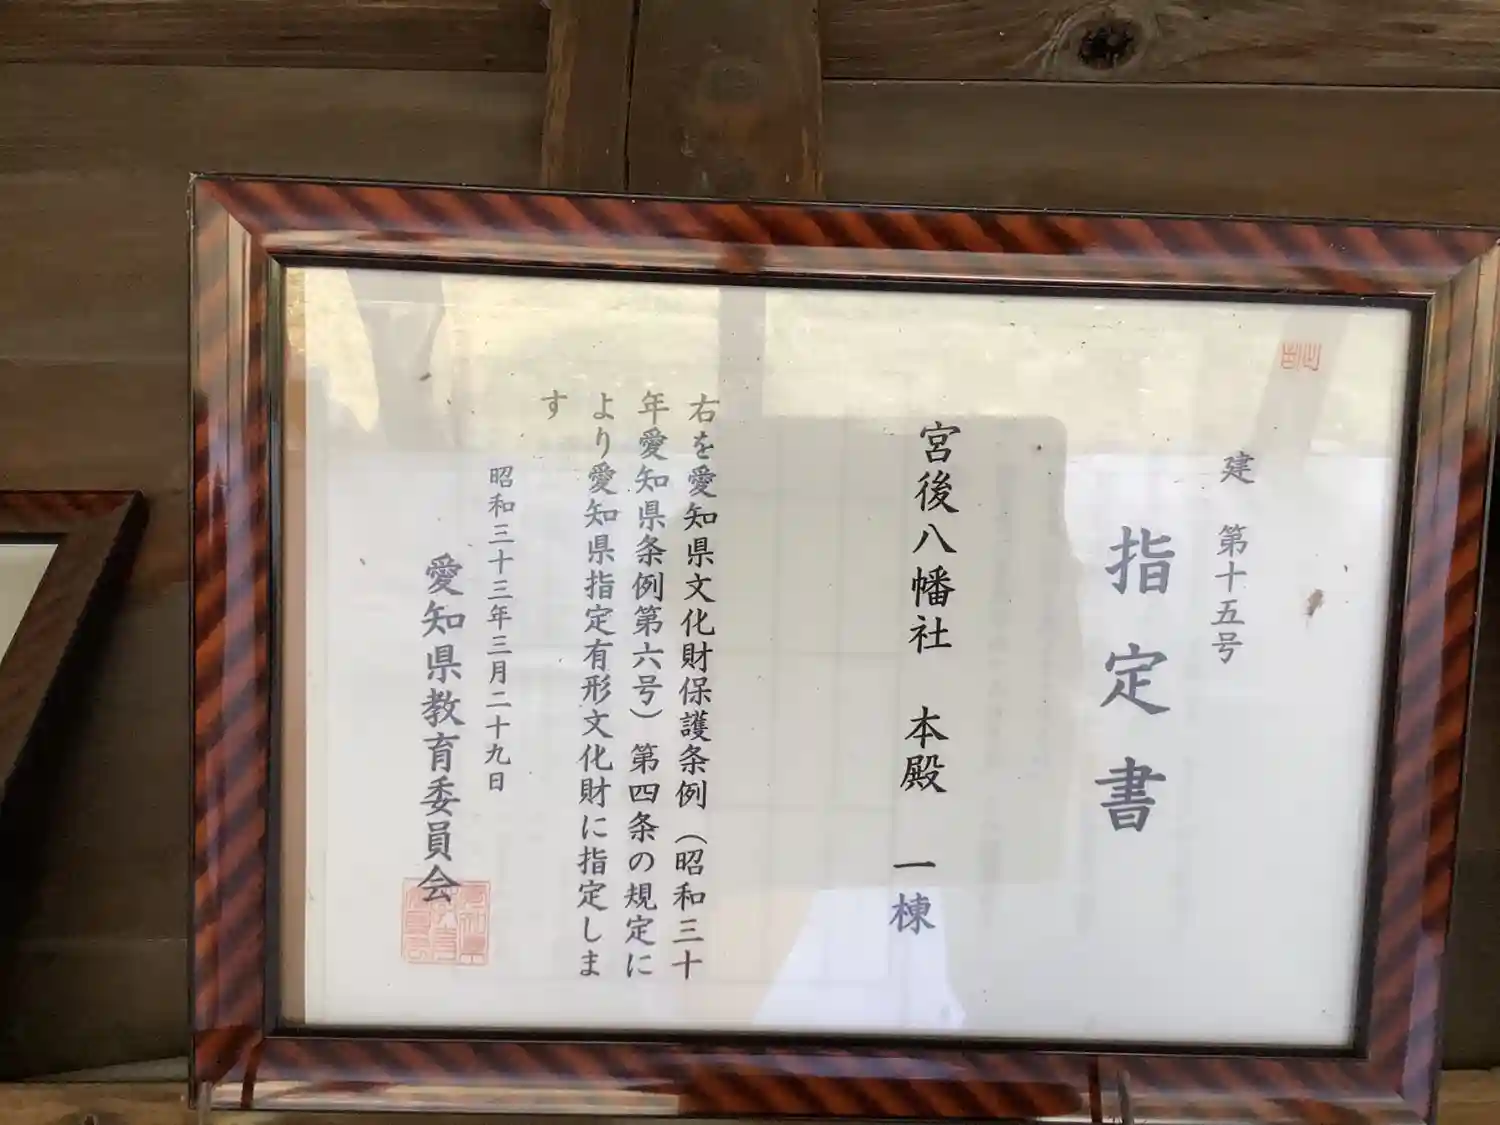 建　第十五号
指定書
宮後八幡社　本殿　一棟
右を愛知県文化財保護条例（昭和三十
年愛知県条例第六号）第四条の規定に
より愛知県指定有形文化財に指定しま
す
昭和三十三年三月二十九日
愛知県教育委員会